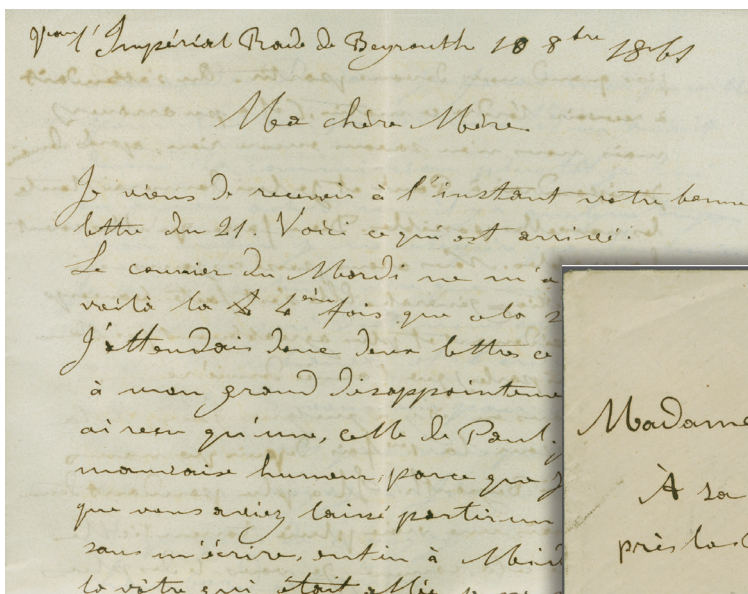 l'Impérial Rade de Beyrouth 10 8bre 1861
Ma chère Mère
Je viens de recevoir à l'instant votre bonne
lettre du 21. Voici ce qui est arrivé.
Le courrier du Mardi ne m'a
voilà la 4ème fois que cela
J'attendais donc deux lettres ce
à mon grand désappointeme
ai reçu qu'une, celle de Paul.
mauvaise humeur, parce que j
que vous aviez laissé partir un
sans m'écrire, enfin à
la vôtre qui était allée
Madame
À sa
près la